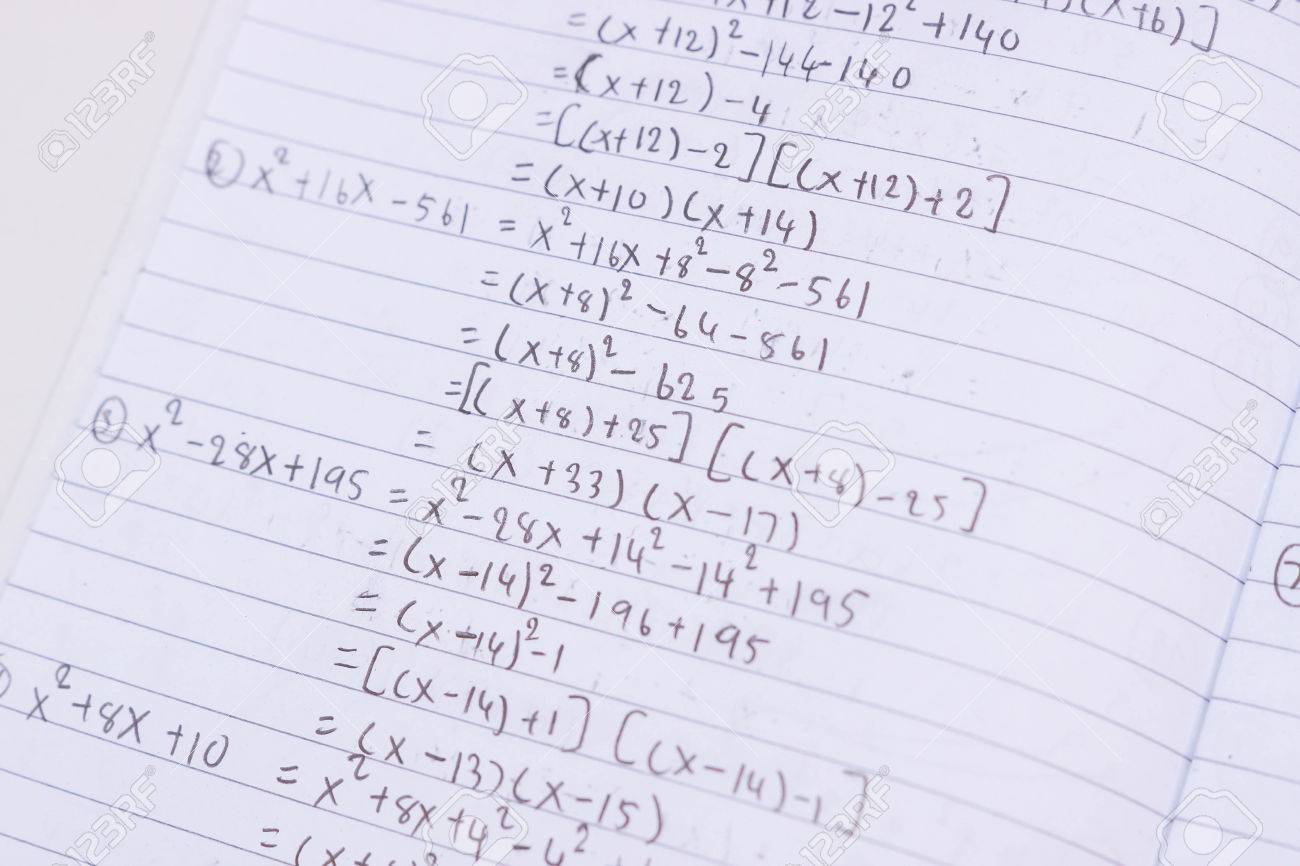 +12²-12²+140
(x+6)]
=(x+12)²-144-140
=(x+12)-4
=[(x+12)-2][(x+12)+2]
=(x+10)(x+14)
② x²+16x-561 = x²+16x+8²-8²-561
=(x+8)²-64-561
=(x+8)²-625
=[(x+8)+25][(x+8)-25]
= (x+33)(x-17)
③ x²-28x+195 = x²-28x+14²-14²+195
=(x-14)²-196+195
=(x-14)²-1
=[(x-14)+1][(x-14)-1]
=(x-13)(x-15)
x²+8x+10 = x²+8x+4²-4²
=(x+